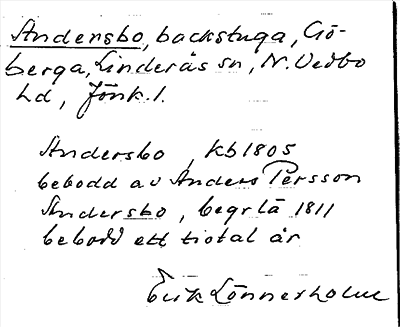 Andersbo, backstuga, Gö-
berga, Linderås sn, N. Vedbo
hd, Jönk. l.
Andersbo, kb 1805
bebodd av Anders Persson
Andersbo, begrlä 1811
bebodd ett tiotal år
Erik Lönnerholm